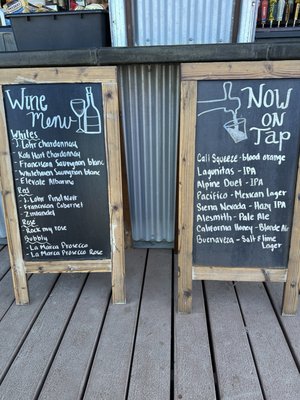 Wine
Menu
Whites
- J. Lohr Chardonnay
- Kali Hart Chardonnay
- Franciscan Sauvignon blanc
- Whitehaven Sauvignon blanc
- Elevate Albarino
Red
- J. Lohr Pinot Noir
- Franciscan Cabernet
- Zinfandel
Rose
- Rock my Rose
Bubbly
- La Marca Prosecco
- La Marca Prosecco Rose
Now on
Tap
Cali Squeeze - blood orange
Lagunitas - IPA
Alpine Duet - IPA
Pacifico - Mexican Lager
Sierra Nevada - Hazy IPA
Alesmith - Pale Ale
California Honey - Blonde Ale
Buenaveza - Salt & Lime
Lager